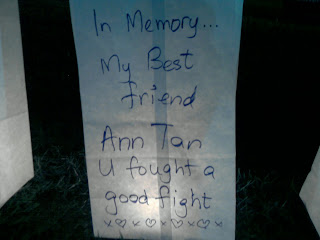 In Memory...
My Best
Friend
Ann Tan
U fought a
good fight
x♡x♡x♡x♡x